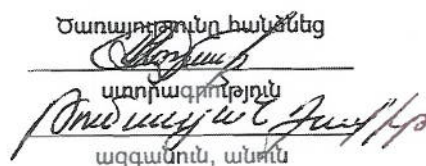 Ծառայությունը հանձնեց
ստորագրություն
Թումասյան
ազգանուն, անուն